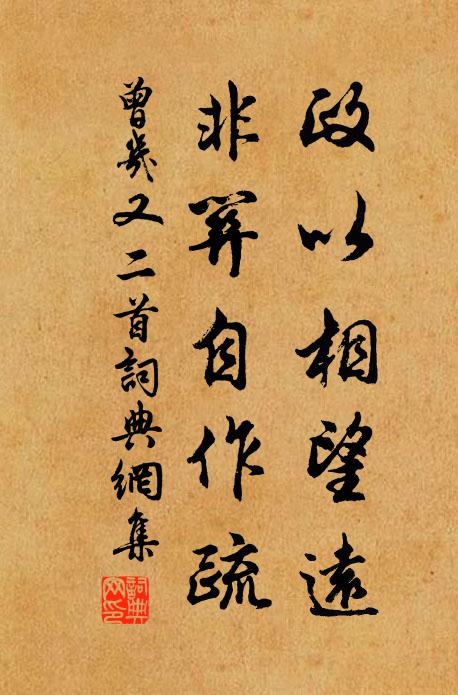 政以相望遠
非關自作疏
曾幾又二首詞典網集
詞典网印